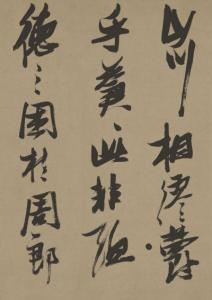 山川相繆鬱
乎蒼〻此非孟
德之困於周郎